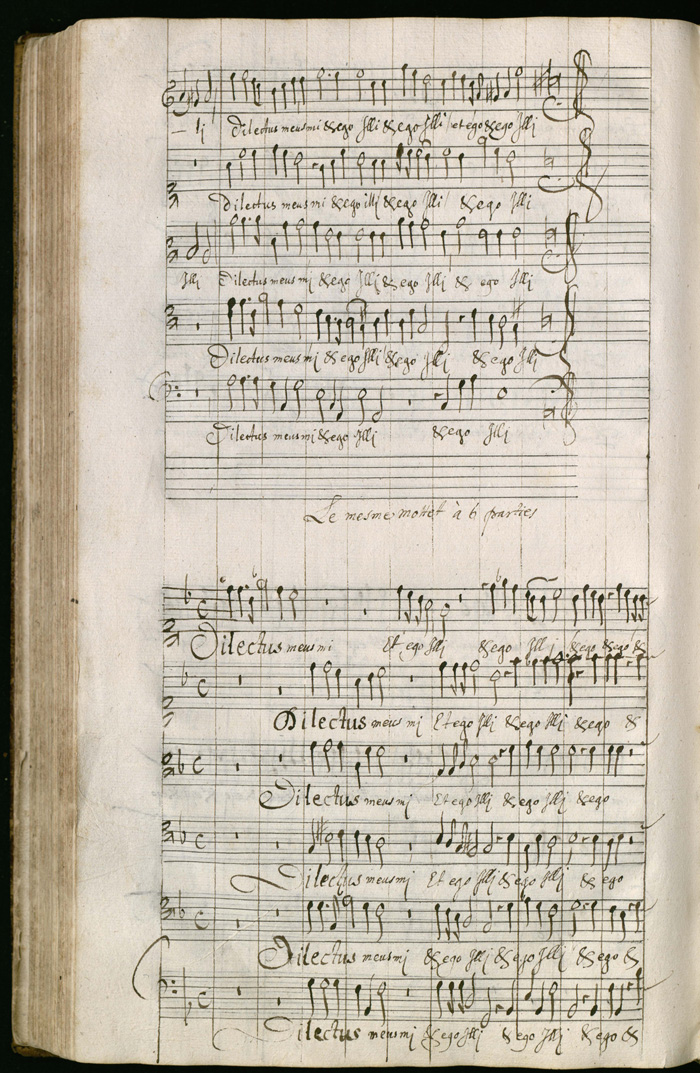 ij Dilectus meus mi &ego Illi &ego Illi et ego &ego Illj
Dilectus meus mi &ego illj &ego Illi &ego Illj
Illj Dilectus meus mj &ego Illj &ego Illj & ego Illj
Dilectus meus mj &ego Illj &ego Illj &ego Illj
Dilectus meus mj &ego Illj &ego Illj
Le mesme mottet à 6 parties
Dilectus meus mi Et ego Illj &ego Illj &ego &ego &
Dilectus meus mj Et ego Illj &ego Illj &ego &
Dilectus meus mj Et ego Illj &ego Illj &ego
Dilectus meus mj Et ego Illj &ego Illj & ego
Dilectus meus mj &ego Illj &ego Illj &ego &
Dilectus meus mj &ego Illj &ego Illj &ego &